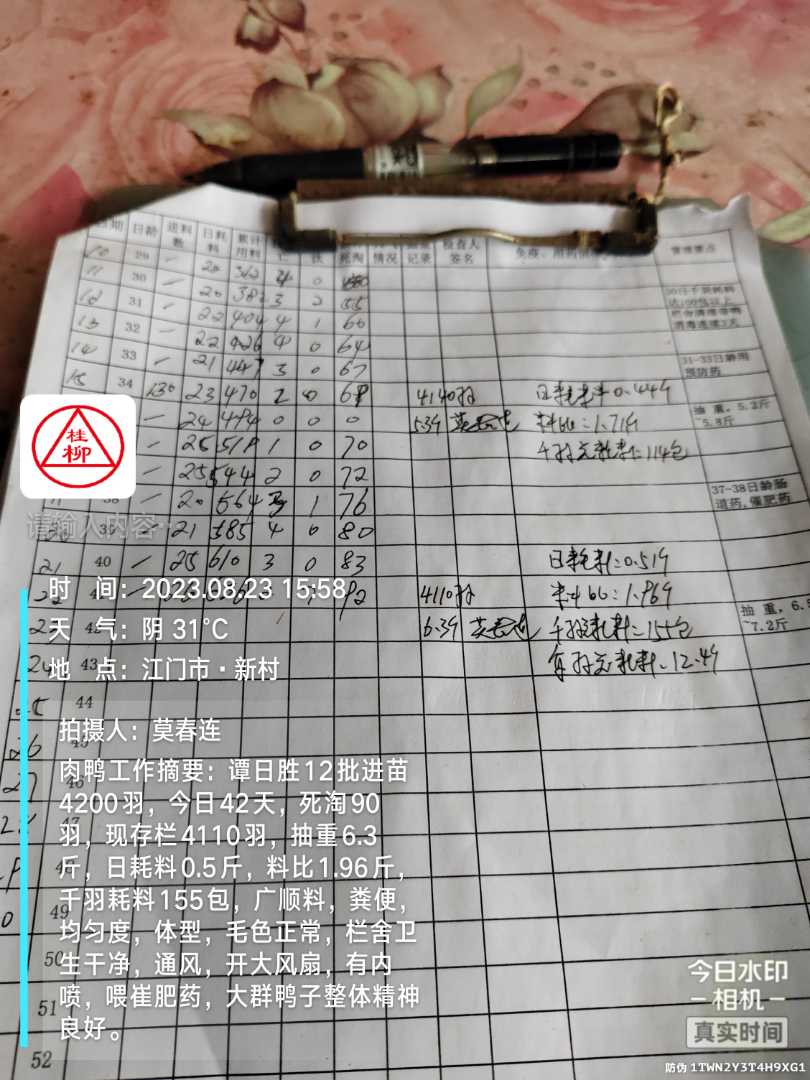 日期 日龄 送料数 日耗料 累计用料 死淘 情况 记录 检查人签名 管理要点
10 29 20 362 4 0
11 30 20 382 3 2 55
12 31 22 404 4 1 60
13 32 22 426 4 0 64
14 33 21 447 3 0 67
31-33日龄用
预防药
15 34 130 23 470 2 0 69 4140羽 日耗料0.44斤
24 494 0 0 0 5.3斤 莫春连 料比:1.71斤
抽重,5.2斤
~5.3斤
25 519 1 0 70 千羽总耗料:114包
25 544 2 0 72
37-38日龄肠
道药,催肥药
38 20 564 3 1 76
39 21 585 4 0 80
21 40 25 610 3 0 83 日耗料:0.51斤
4110羽 料比:1.96斤
6.3斤 莫春连 千羽耗料:155包
~7.2斤
每羽总耗料:12.4斤
23 42
24 43
25 44
26 45
27 46
49
50
51
52
桂柳
请输入内容
时 间:2023.08.23 15:58
天 气:阴 31℃
地 点:江门市·新村
拍摄人:莫春连
肉鸭工作摘要:谭日胜12批进苗
4200羽,今日42天,死淘90
羽,现存栏4110羽,抽重6.3
斤,日耗料0.5斤,料比1.96斤,
千羽耗料155包,广顺料,粪便,
均匀度,体型,毛色正常,栏舍卫
生干净,通风,开大风扇,有内
喷,喂崔肥药,大群鸭子整体精神
良好。
今日水印
相机
真实时间
防伪 1TWN2Y3T4H9XG1